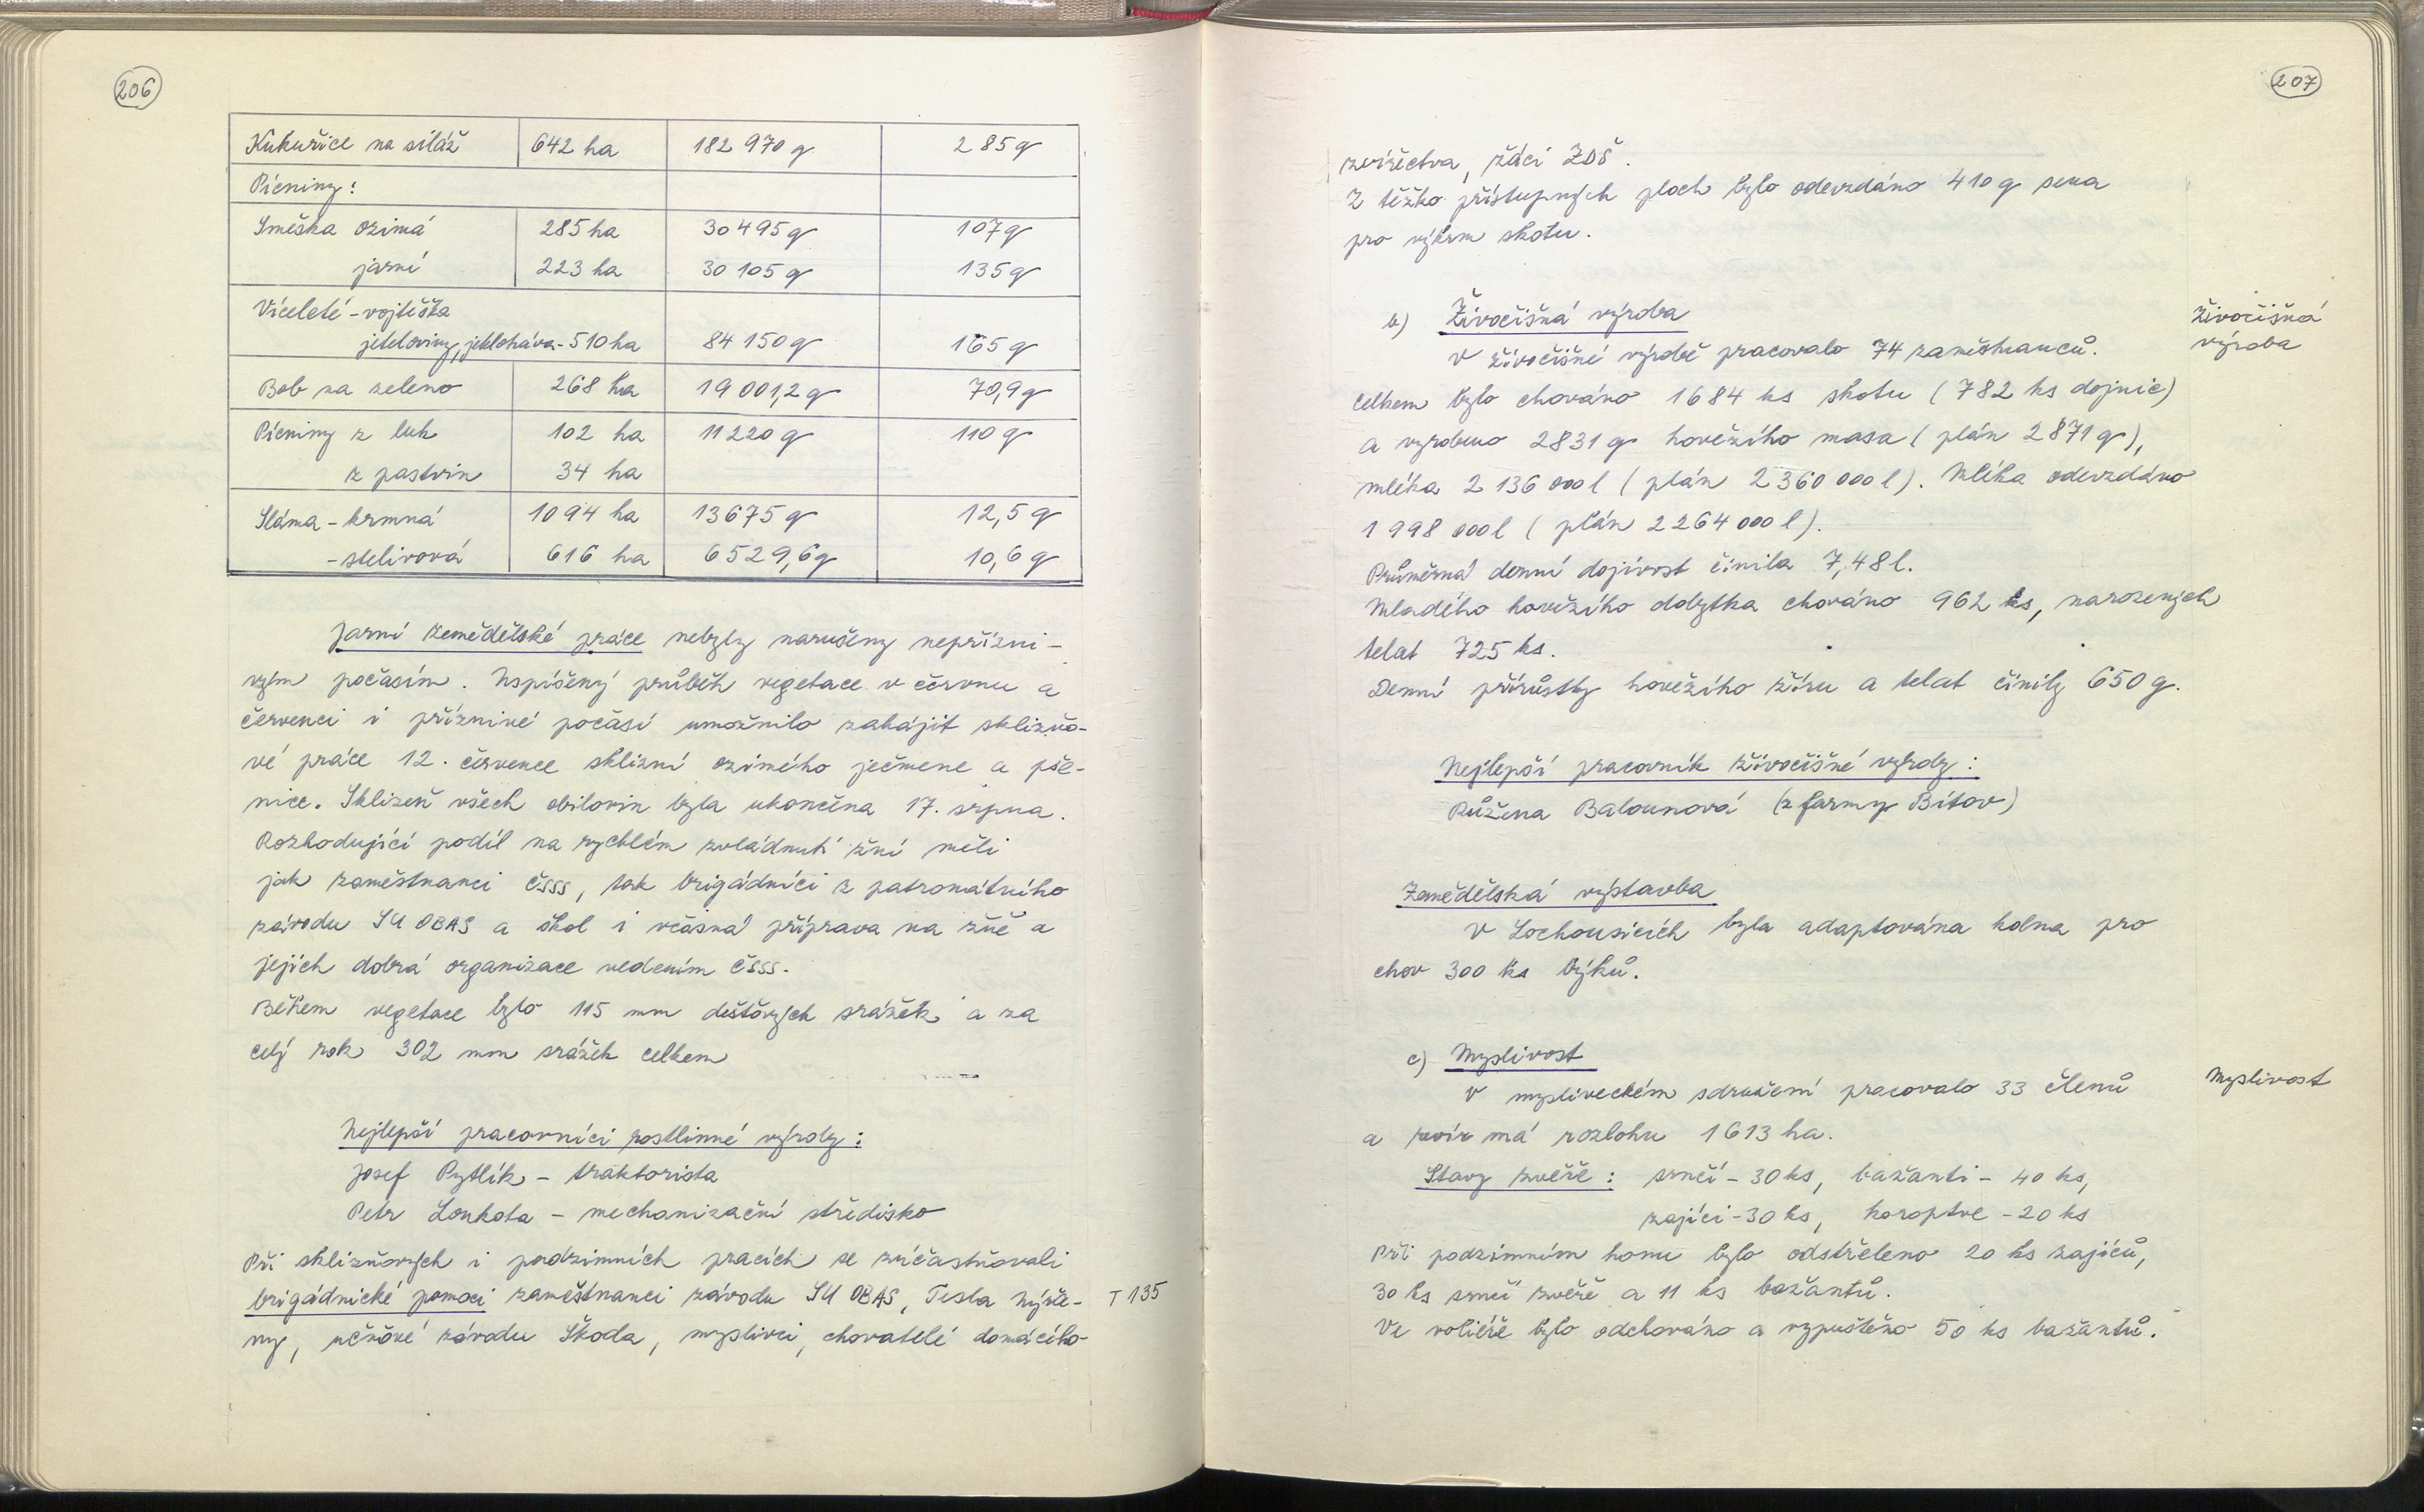 206
Kukuřice na siláž 642 ha 182 970 q 285 q
Pícniny:
Směska ozimá 285 ha 30 495 q 107 q
jarní 223 ha 30 105 q 135 q
Víceleté - vojtěška
jeteloviny, jetelotráva - 510 ha 84 150 q 165 q
Bob na zeleno 268 ha 19 001,2 q 70,9 q
Pícniny z luk 102 ha 11 220 q 110 q
z pastvin 34 ha
Sláma - krmná 1094 ha 13675 q 12,5 q
- stelivová 616 ha 6529,6 q 10,6 q
Jarní zemědělské práce nebyly narušeny nepřízni-
vým počasím. Uspíšený průběh vegetace v červnu a
červenci i příznivé počasí umožnilo zahájit sklizňo-
vé práce 12. července sklizní ozimého ječmene a pše-
nice. Sklizeň všech obilovin byla ukončena 17. srpna.
Rozhodující podíl na rychlém zvládnutí žní měli
jak zaměstnanci ČSSS, tak brigádníci z patronátního
závodu SU OBAS a škol i včasná příprava na žně a
jejich dobrá organizace vedením ČSSS.
Během vegetace bylo 115 mm dešťových srážek a za
celý rok 302 mm srážek celkem
Nejlepší pracovníci rostlinné výroby:
Josef Pytlík - traktorista
Petr Loukota - mechanizační středisko
Při sklizňových i podzimních pracích se zúčastňovali
brigádnické pomoci zaměstnanci závodu SU OBAS, Tesla Nýřa- T 135
ny, učňové závodu Škoda, myslivci, chovatelé domácího
207
zvířectva, žáci ZDŠ.
Z těžko přístupných ploch bylo odevzdáno 410 q sena
pro výkrm skotu.
b) Živočišná výroba
Živočišná
výroba
V živočišné výrobě pracovalo 74 zaměstnanců.
Celkem bylo chováno 1684 ks skotu (782 ks dojnic)
a vyrobeno 2831 q hovězího masa (plán 2871 q),
mléka 2 136 000 l (plán 2 360 000 l). Mléka odevzdáno
1 998 000 l (plán 2 264 000 l).
Průměrná denní dojivost činila 7,48 l.
Mladého hovězího dobytka chováno 962 ks, narozených
telat 725 ks.
Denní přírůstky hovězího žíru a telat činily 650 g.
Nejlepší pracovník živočišné výroby:
Růžena Balounová (z farmy Bítov)
Zemědělská výstavba
V Lochousicích byla adaptována kolna pro
chov 300 ks býků.
c) Myslivost
Myslivost
V mysliveckém sdružení pracovalo 33 členů
a revír má rozlohu 1613 ha.
Stavy zvěře: srnčí - 30 ks, bažanti - 40 ks,
zajíci - 30 ks, koroptve - 20 ks
Při podzimním honu bylo odstřeleno 20 ks zajíců,
30 ks srnčí zvěře a 11 ks bažantů.
Ve voliéře bylo odchováno a vypuštěno 50 ks bažantů.